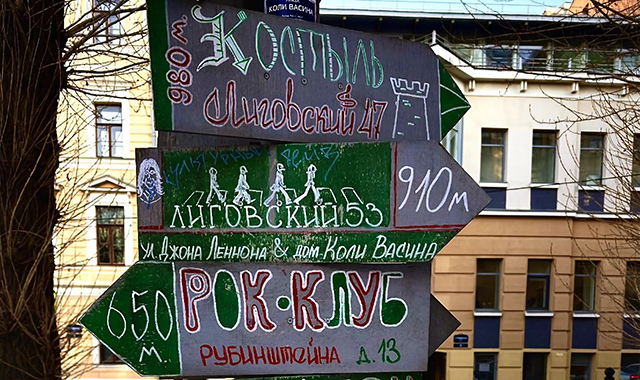 КОЛИ ВАСИНА
980 м.
Костыль
Лиговский 47
КУЛЬТУРНЫЙ
ЛИГОВСКИЙ 53
910 м
ул. Джона Леннона & дом Коли Васина
650 м.
РОК·КЛУБ
РУБИНШТЕЙНА д.13